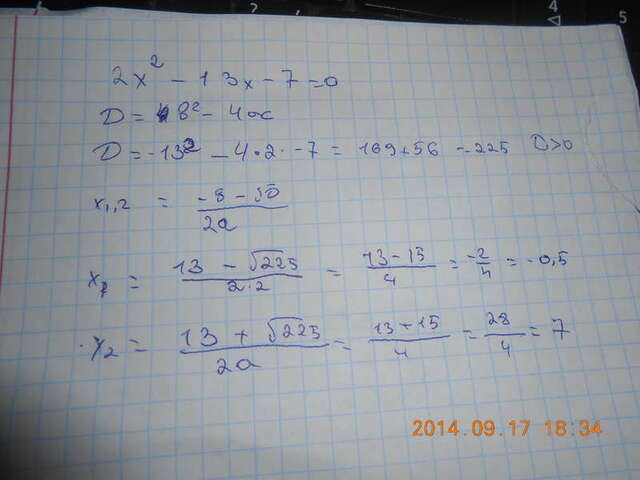 2x² - 13x - 7 = 0
D = в² - 4ac
D = -13² - 4·2·-7 = 169+56 = 225 D>0
x₁,₂ = (-в - √D)/2a
x₁ = (13 - √225)/2·2 = (13 - 15)/4 = -2/4 = -0,5
x₂ = (13 + √225)/2a = (13 + 15)/4 = 28/4 = 7
2014.09.17 18:34
4
5